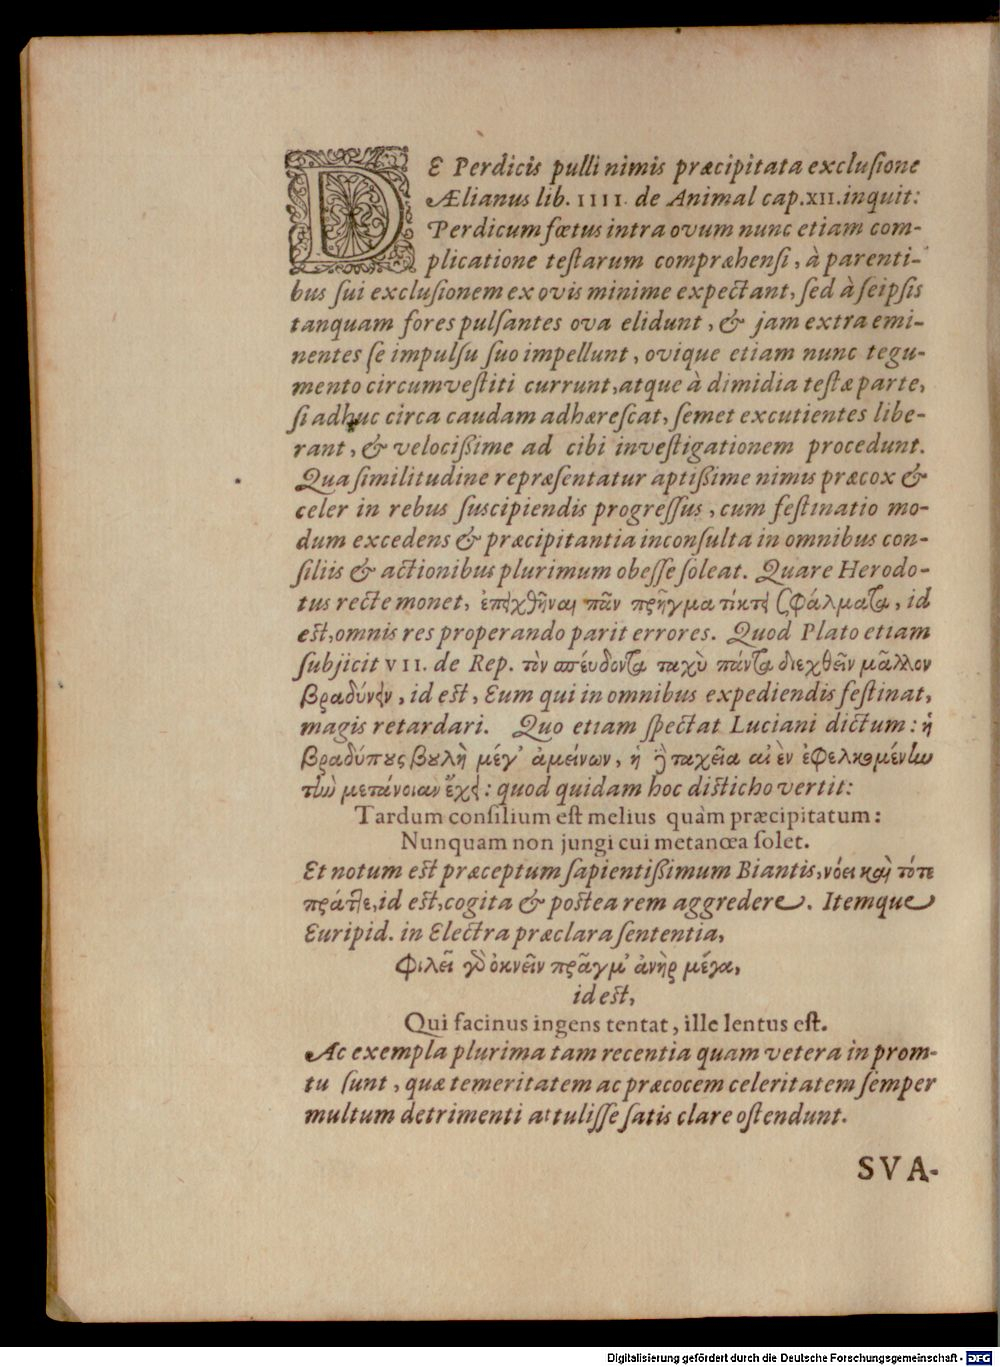 DE Perdicis pulli nimis præcipitata exclusione
Ælianus lib. IIII. de Animal cap. XII. inquit:
Perdicum fœtus intra ovum nunc etiam com-
plicatione testarum compræhensi, à parenti-
bus sui exclusionem ex ovis minime expectant, sed à seipsis
tanquam fores pulsantes ova elidunt, & jam extra emi-
nentes se impulsu suo impellunt, ovique etiam nunc tegu-
mento circumvestiti currunt, atque à dimidia testæ parte,
si adhuc circa caudam adhærescat, semet excutientes libe-
rant, & velocißime ad cibi investigationem procedunt.
Qua similitudine repræsentatur aptißime nimis præcox &
celer in rebus suscipiendis progressus, cum festinatio mo-
dum excedens & præcipitantia inconsulta in omnibus con-
siliis & actionibus plurimum obesse soleat. Quare Herodo-
tus recte monet, ἐπειχθῆναι πᾶν πρῆγμα τίκτει σφάλματα, id
est, omnis res properando parit errores. Quod Plato etiam
subjicit VII. de Rep. τὸν σπέυδοντα ταχὺ πάντα διεχθεῖν μᾶλλον
βραδύνειν, id est, Eum qui in omnibus expediendis festinat,
magis retardari. Quo etiam spectat Luciani dictum: ἡ
βραδύπους βουλὴ μέγ' ἀμείνων, ἡ δὲ ταχεῖα αἰὲν ἐφελκομένην
τὴν μετάνοιαν ἔχει: quod quidam hoc disticho vertit:
Tardum consilium est melius quàm præcipitatum:
Nunquam non jungi cui metanœa solet.
Et notum est præceptum sapientißimum Biantis, νόει καὶ τότε
πράττε, id est, cogita & postea rem aggredere. Itemque
Euripid. in Electra præclara sententia,
Φιλεῖ γὸ ὀκνεῖν πρᾶγμ' ἀνὴρ μέγα,
id est,
Qui facinus ingens tentat, ille lentus est.
Ac exempla plurima tam recentia quam vetera in prom-
tu sunt, quæ temeritatem ac præcocem celeritatem semper
multum detrimenti attulisse satis clare ostendunt.
SVA-
Digitalisierung gefördert durch die Deutsche Forschungsgemeinschaft - DFG